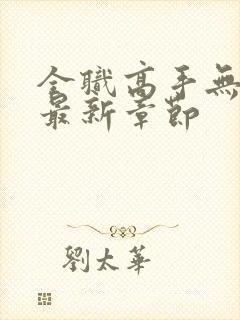 全職高手無
最新章節
劉太華